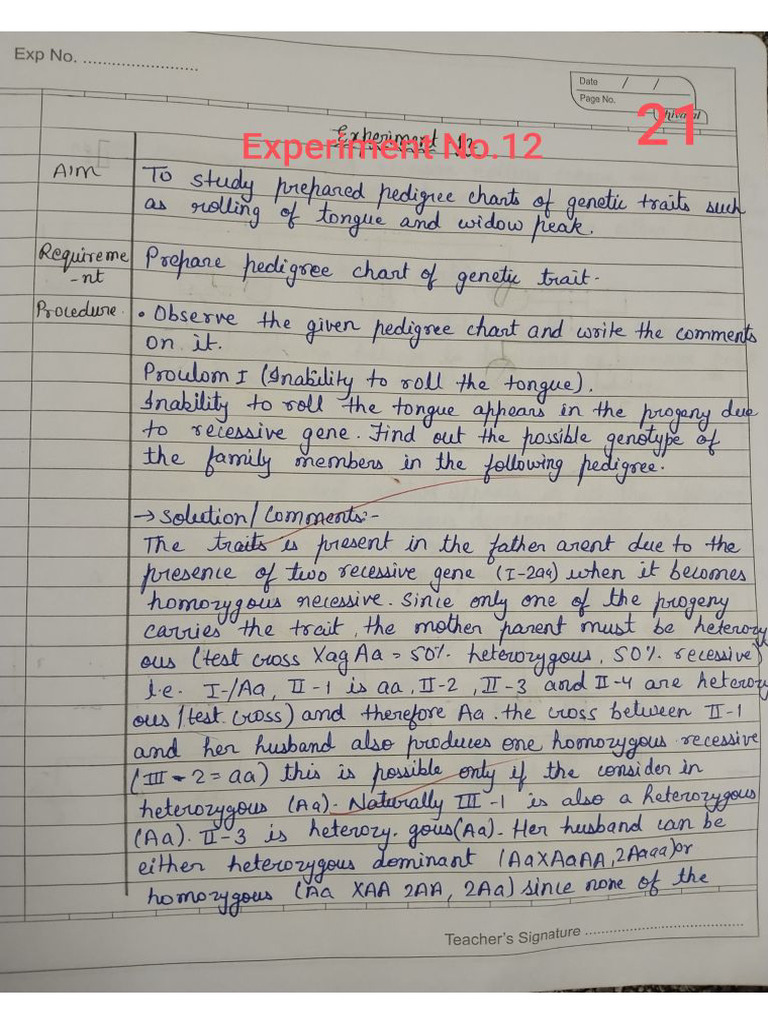 Exp No. ........................
Date / /
Page No.
Shivalal
21
Experiment 12
Experiment No.12
Aim
To study prepared pedigree charts of genetic traits such
as rolling of tongue and widow peak.
Requireme
-nt
Prepare pedigree chart of genetic trait.
Procedure.
• Observe the given pedigree chart and write the comments
on it.
Proulom I (Inability to roll the tongue).
Inability to roll the tongue appears in the progeny due
to recessive gene. Find out the possible genotype of
the family members in the following pedigree.
→ Solution/Comments:-
The traits is present in the father arent due to the
presence of two recessive gene (I-2aa) when it becomes
homozygous necessive. Since only one of the progeny
carries the trait, the mother parent must be heterozy
ous (test cross XagAa = 50%. heterozygous, 50%. recessive)
i.e. I-/Aa, II-1 is aa, II-2, II-3 and II-4 are heteroz
ous/test cross) and therefore Aa. the cross between II-1
and her husband also produces one homozygous recessive
(III-2=aa) this is possible only if the consider in
heterozygous (Aa). Naturally III-1 is also a heterozygous
(Aa). II-3 is heterozy. gous(Aa). Her husband can be
either heterozygous dominant (AaXAaAA, 2Aaaa)or
homozygous (Aa XAA 2AA, 2Aa) since none of the
Teacher's Signature ................................